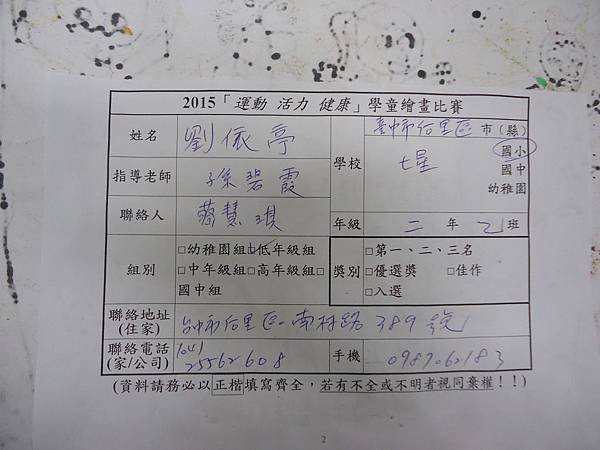 2015「運動 活力 健康」學童繪畫比賽
姓名 劉依亭 學校 臺中市后里區 市(縣)
七星 國小
國中
幼稚園
指導老師 孫碧霞
聯絡人 蔡慧琪
年級 二 年 乙 班
組別 □幼稚園組□低年級組
□中年級組□高年級組□
國中組
獎別 □第一、二、三名
□優選獎 □佳作
□入選
聯絡地址
(住家) 台中市后里區南村路389號
聯絡電話
(家/公司) (04) 25562608 手機 0987062183
(資料請務必以正楷填寫齊全，若有不全或不明者視同棄權！！)
2